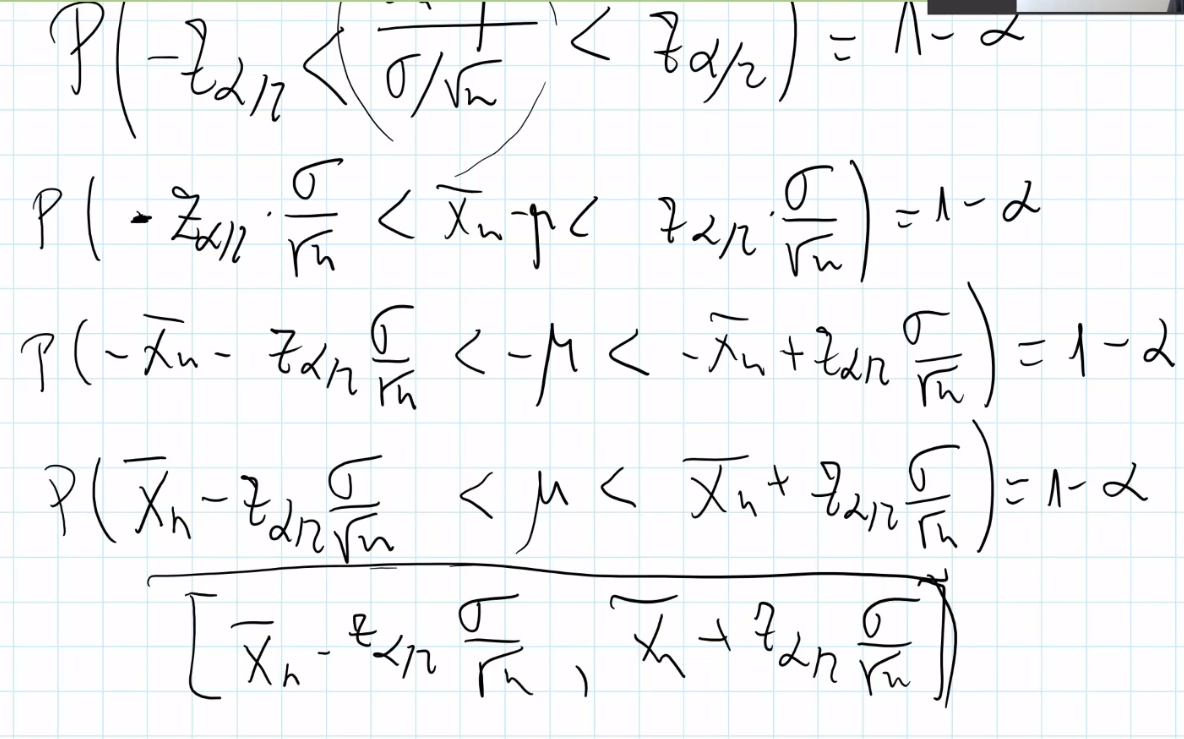 P(-z_{α/2} < \frac{}{σ/√n} < z_{α/2}) = 1-α
P(-z_{α/2} · \frac{σ}{√n} < \overline{X}_n - μ < z_{α/2} · \frac{σ}{√n}) = 1-α
P(-\overline{X}_n - z_{α/2} \frac{σ}{√n} < -μ < -\overline{X}_n + z_{α/2} \frac{σ}{√n}) = 1-α
P(\overline{X}_n - z_{α/2} \frac{σ}{√n} < μ < \overline{X}_n + z_{α/2} \frac{σ}{√n}) = 1-α
[\overline{X}_n - z_{α/2} \frac{σ}{√n}, \overline{X}_n + z_{α/2} \frac{σ}{√n}]